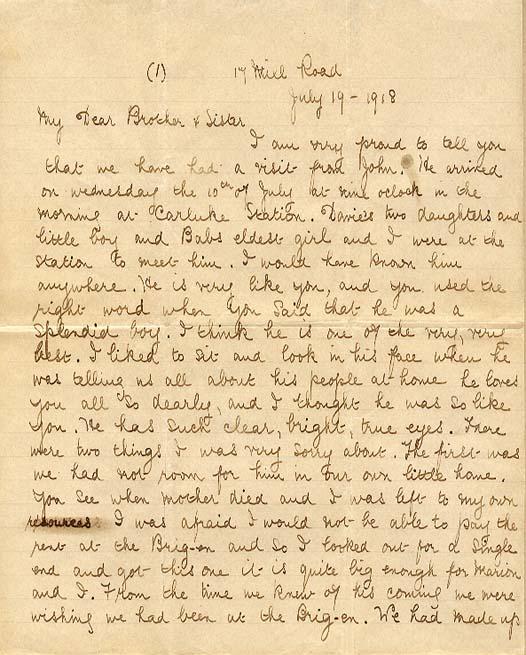 (1) 17 Mill Road
July 19 - 1918
My Dear Brother & Sister
I am very proud to tell you
that we have had a visit from John. He arrived
on wednesday the 10th of July at nine oclock in the
morning at Carluke Station. Davie's two daughters and
little boy and Babs eldest girl and I were at the
station to meet him. I would have known him
anywhere. He is very like you, and you used the
right word when you said that he was a
splendid boy. I think he is one of the very, very
best. I liked to sit and look in his face when he
was telling us all about his people at home he loves
you all so dearly, and I thought he was so like
you. He has such clear, bright, true eyes. There
were two things I was very sorry about. The first was
we had not room for him in our own little home.
You see when mother died and I was left to my own
resources I was afraid I would not be able to pay the
rent at the Brig-en and so I looked out for a single
end and got this one it is quite big enough for Marion
and I. From the time we knew of his coming we were
wishing we had been at the Brig-en. We had made up